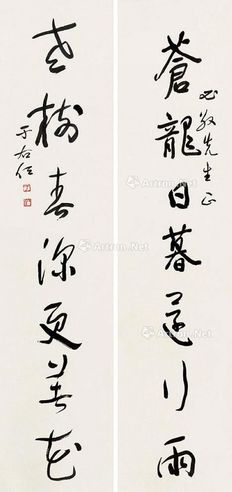 先生正
蒼龍日暮還行雨
老樹春深更著花
于右任
Artron.Net